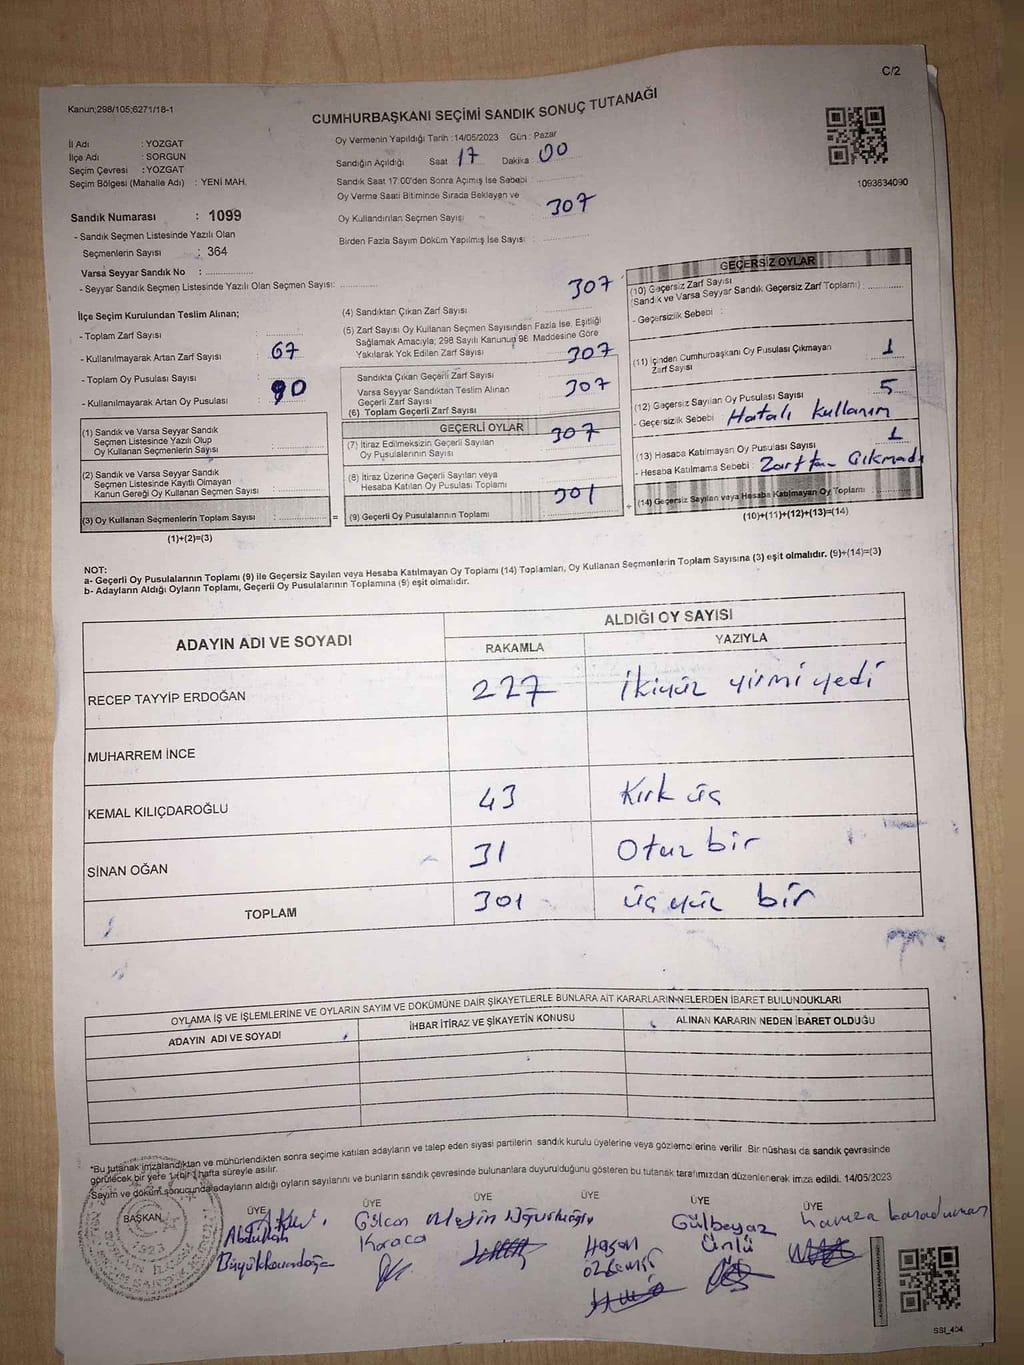 C/2
Kanun;298/105;6271/18-1
CUMHURBAŞKANI SEÇİMİ SANDIK SONUÇ TUTANAĞI
İl Adı : YOZGAT
İlçe Adı : SORGUN
Seçim Çevresi : YOZGAT
Seçim Bölgesi (Mahalle Adı) : YENİ MAH.
Oy Vermenin Yapıldığı Tarih : 14/05/2023 Gün : Pazar
Sandığın Açıldığı Saat 17 Dakika 00
Sandık Saat 17:00'den Sonra Açımış İse Sebebi :
Oy Verme Saati Bitiminde Sırada Bekleyen ve
Oy Kullandırılan Seçmen Sayısı 307
Birden Fazla Sayım Döküm Yapılmış İse Sayısı :
1093634090
Sandık Numarası : 1099
- Sandık Seçmen Listesinde Yazılı Olan
Seçmenlerin Sayısı : 364
Varsa Seyyar Sandık No :
- Seyyar Sandık Seçmen Listesinde Yazılı Olan Seçmen Sayısı:
İlçe Seçim Kurulundan Teslim Alınan;
- Toplam Zarf Sayısı :
- Kullanılmayarak Artan Zarf Sayısı : 67
- Toplam Oy Pusulası Sayısı :
- Kullanılmayarak Artan Oy Pusulası : 90
(1) Sandık ve Varsa Seyyar Sandık
Seçmen Listesinde Yazılı Olup
Oy Kullanan Seçmenlerin Sayısı
(2) Sandık ve Varsa Seyyar Sandık
Seçmen Listesinde Kayıtlı Olmayan
Kanun Gereği Oy Kullanan Seçmen Sayısı
(3) Oy Kullanan Seçmenlerin Toplam Sayısı :
(1)+(2)=(3)
=
(4) Sandıktan Çıkan Zarf Sayısı 307
(5) Zarf Sayısı Oy Kullanan Seçmen Sayısından Fazla İse, Eşitliği
Sağlamak Amacıyla; 298 Sayılı Kanunun 98. Maddesine Göre
Yakılarak Yok Edilen Zarf Sayısı 307
Sandıkta Çıkan Geçerli Zarf Sayısı
Varsa Seyyar Sandıktan Teslim Alınan
Geçerli Zarf Sayısı 307
(6) Toplam Geçerli Zarf Sayısı
GEÇERLİ OYLAR
(7) İtiraz Edilmeksizin Geçerli Sayılan
Oy Pusulalarının Sayısı 307
(8) İtiraz Üzerine Geçerli Sayılan veya
Hesaba Katılan Oy Pusulası Toplamı
(9) Geçerli Oy Pusulalarının Toplamı 301
+
GEÇERSİZ OYLAR
(10) Geçersiz Zarf Sayısı
(Sandık ve Varsa Seyyar Sandık Geçersiz Zarf Toplamı) :
- Geçersizlik Sebebi :
(11) İçinden Cumhurbaşkanı Oy Pusulası Çıkmayan
Zarf Sayısı 1
(12) Geçersiz Sayılan Oy Pusulası Sayısı 5
- Geçersizlik Sebebi : Hatalı kullanım
(13) Hesaba Katılmayan Oy Pusulası Sayısı 1
- Hesaba Katılmama Sebebi : Zarftan Çıkmadı
(14) Geçersiz Sayılan veya Hesaba Katılmayan Oy Toplamı :
(10)+(11)+(12)+(13)=(14)
NOT:
a- Geçerli Oy Pusulalarının Toplamı (9) ile Geçersiz Sayılan veya Hesaba Katılmayan Oy Toplamı (14) Toplamları, Oy Kullanan Seçmenlerin Toplam Sayısına (3) eşit olmalıdır. (9)+(14)=(3)
b- Adayların Aldığı Oyların Toplamı, Geçerli Oy Pusulalarının Toplamına (9) eşit olmalıdır.
ADAYIN ADI VE SOYADI
ALDIĞI OY SAYISI
RAKAMLA YAZIYLA
RECEP TAYYİP ERDOĞAN 227 ikiyüz yirmi yedi
MUHARREM İNCE
KEMAL KILIÇDAROĞLU 43 Kırk üç
SİNAN OĞAN 31 Otuz bir
TOPLAM 301 üç yüz bir
OYLAMA İŞ VE İŞLEMLERİNE VE OYLARIN SAYIM VE DÖKÜMÜNE DAİR ŞİKAYETLERLE BUNLARA AİT KARARLARIN NELERDEN İBARET BULUNDUKLARI
ADAYIN ADI VE SOYADI İHBAR İTİRAZ VE ŞİKAYETİN KONUSU ALINAN KARARIN NEDEN İBARET OLDUĞU
*Bu tutanak imzalandıktan ve mühürlendikten sonra seçime katılan adayların ve talep eden siyasi partilerin sandık kurulu üyelerine veya gözlemcilerine verilir. Bir nüshası da sandık çevresinde
görülecek bir yere 1 (bir) hafta süreyle asılır.
Sayım ve döküm sonucunda adayların aldığı oyların sayılarını ve bunların sandık çevresinde bulunanlara duyurulduğunu gösteren bu tutanak tarafımızdan düzenlenerek imza edildi. 14/05/2023
BAŞKAN ÜYE ÜYE ÜYE ÜYE ÜYE ÜYE
1923
Abdullah
Gülcan Karaca
Metin
Hasan
Gülbeyaz Ünlü
Hamza Karaduman
SSI_404